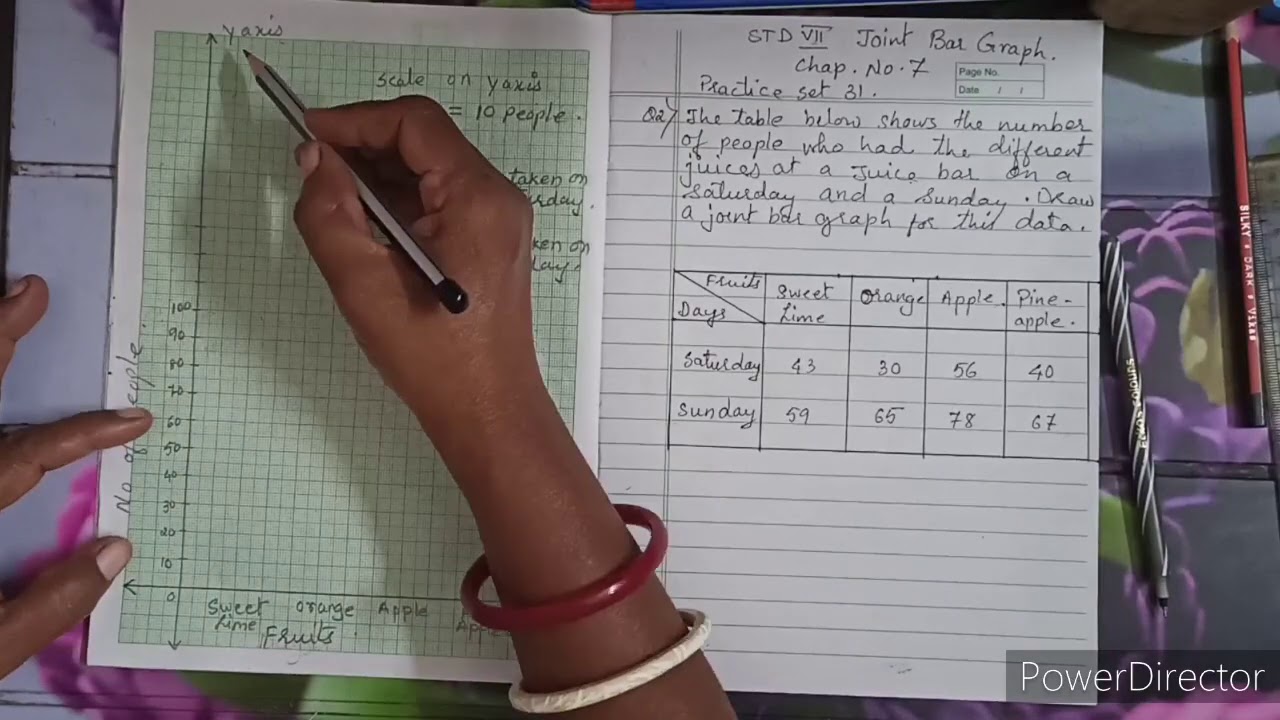 Y axis
scale on y axis
= 10 people.
taken on
taken on
100
90
80
70
60
50
40
30
20
10
0
No of people.
Sweet Orange Apple
lime Apple
Fruits.
STD VII Joint Bar Graph.
Chap. No. 7
Page No.
Date / /
Practice set 31.
Q2) The table below shows the number
of people who had the different
juices at a Juice bar on a
Saturday and a Sunday. Draw
a joint bar graph for this data.
Fruits Sweet Orange Apple. Pine-
Days lime apple.
Saturday 43 30 56 40
Sunday 59 65 78 67
PowerDirector